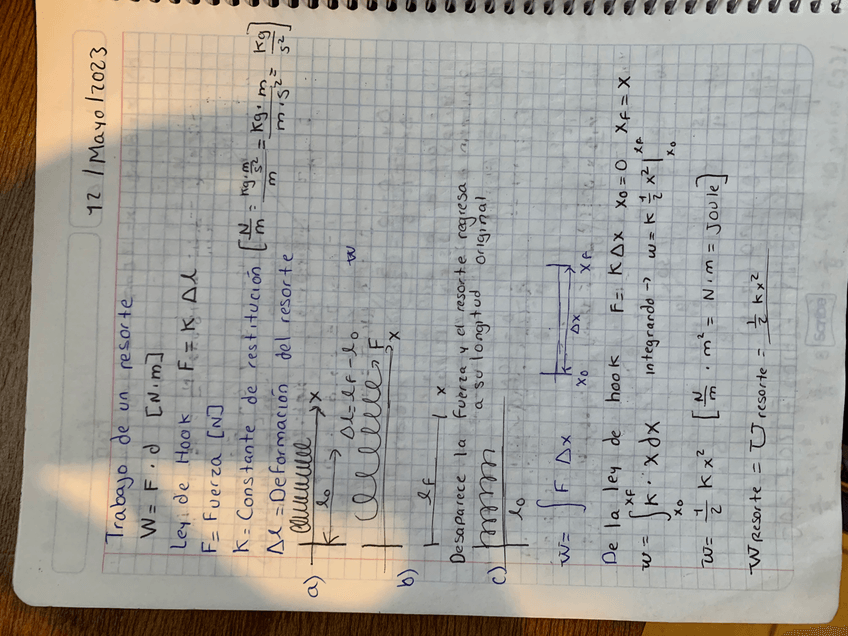 12 / Mayo / 2023
Trabajo de un resorte
W = F · d [N·m]
Ley de Hook F = K Δl
F = Fuerza [N]
K = Constante de restitución [N/m = kg·m/s² / m = kg·m / m·s² = kg/s²]
Δl = Deformación del resorte
a) x
l₀ → Δl = lF - l₀ W
F
b) x
lF x
Desaparece la fuerza y el resorte regresa
a su longitud original
c)
l₀
W = ∫ F Δx x₀ Δx xF
De la ley de hook F = KΔx x₀ = 0 xF = x
w = ∫x₀^xF K · x dx integrando → w = k ½ x² |x₀^xF
W = ½ K x² [N/m · m² = N·m = Joule]
W resorte = U resorte = ½ k x²
Scribe